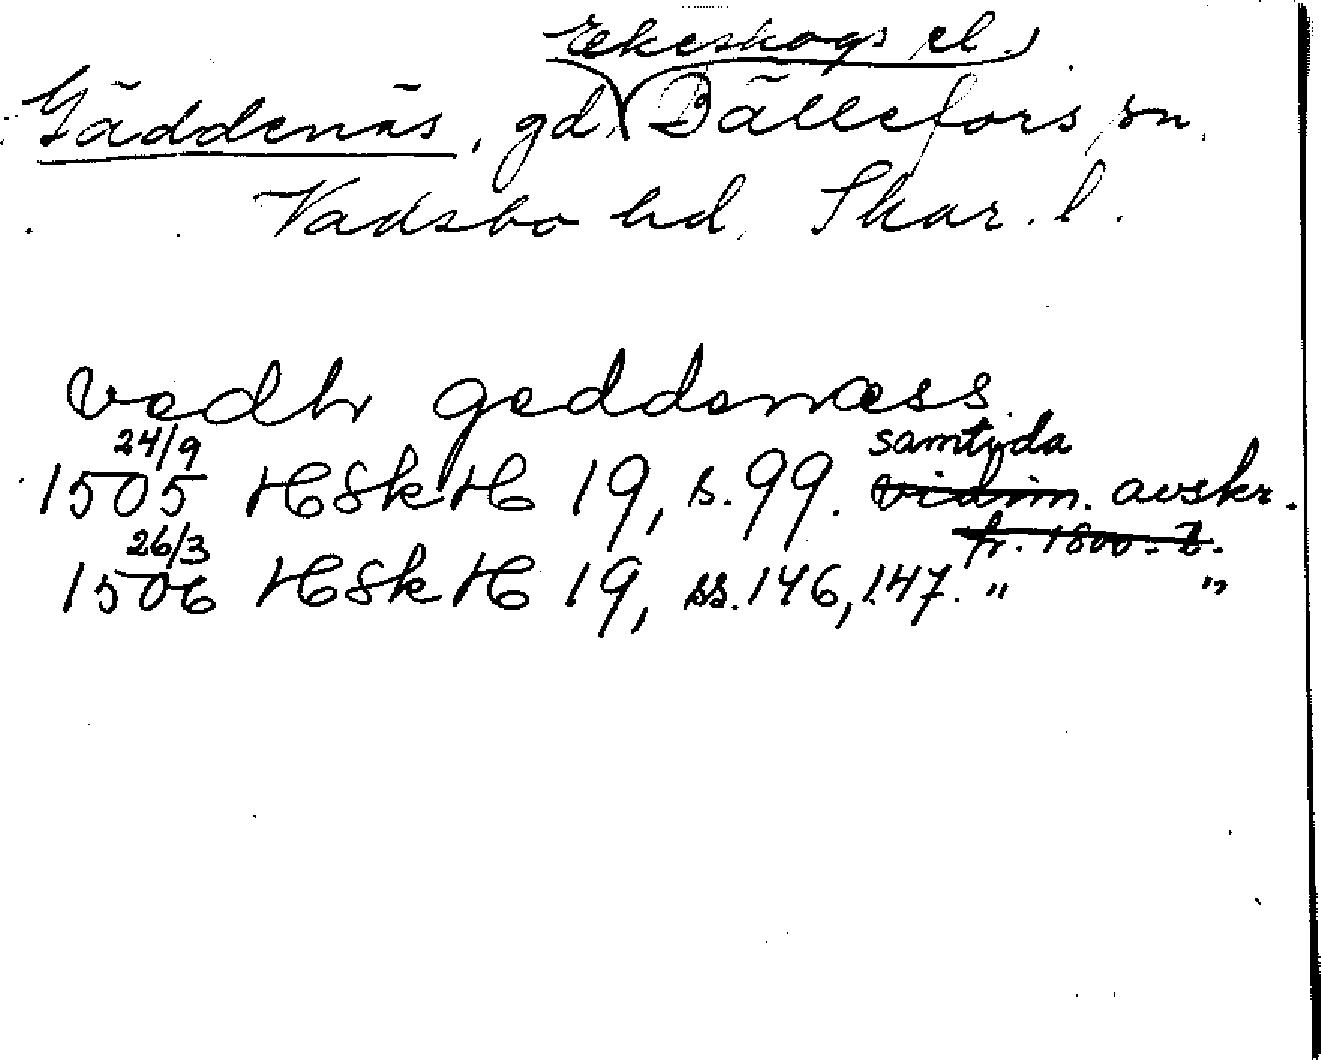 Ekeskogs el.
Gäddenäs, gd, Bällefors sn,
Vadsbo hd, Skar. l.
vedh geddenæss
24/9 samtida
1505 HSkH 19, s. 99. vidim. avskr.
26/3 fr. 1600-t.
1506 HSkH 19, ss. 146, 147. " "